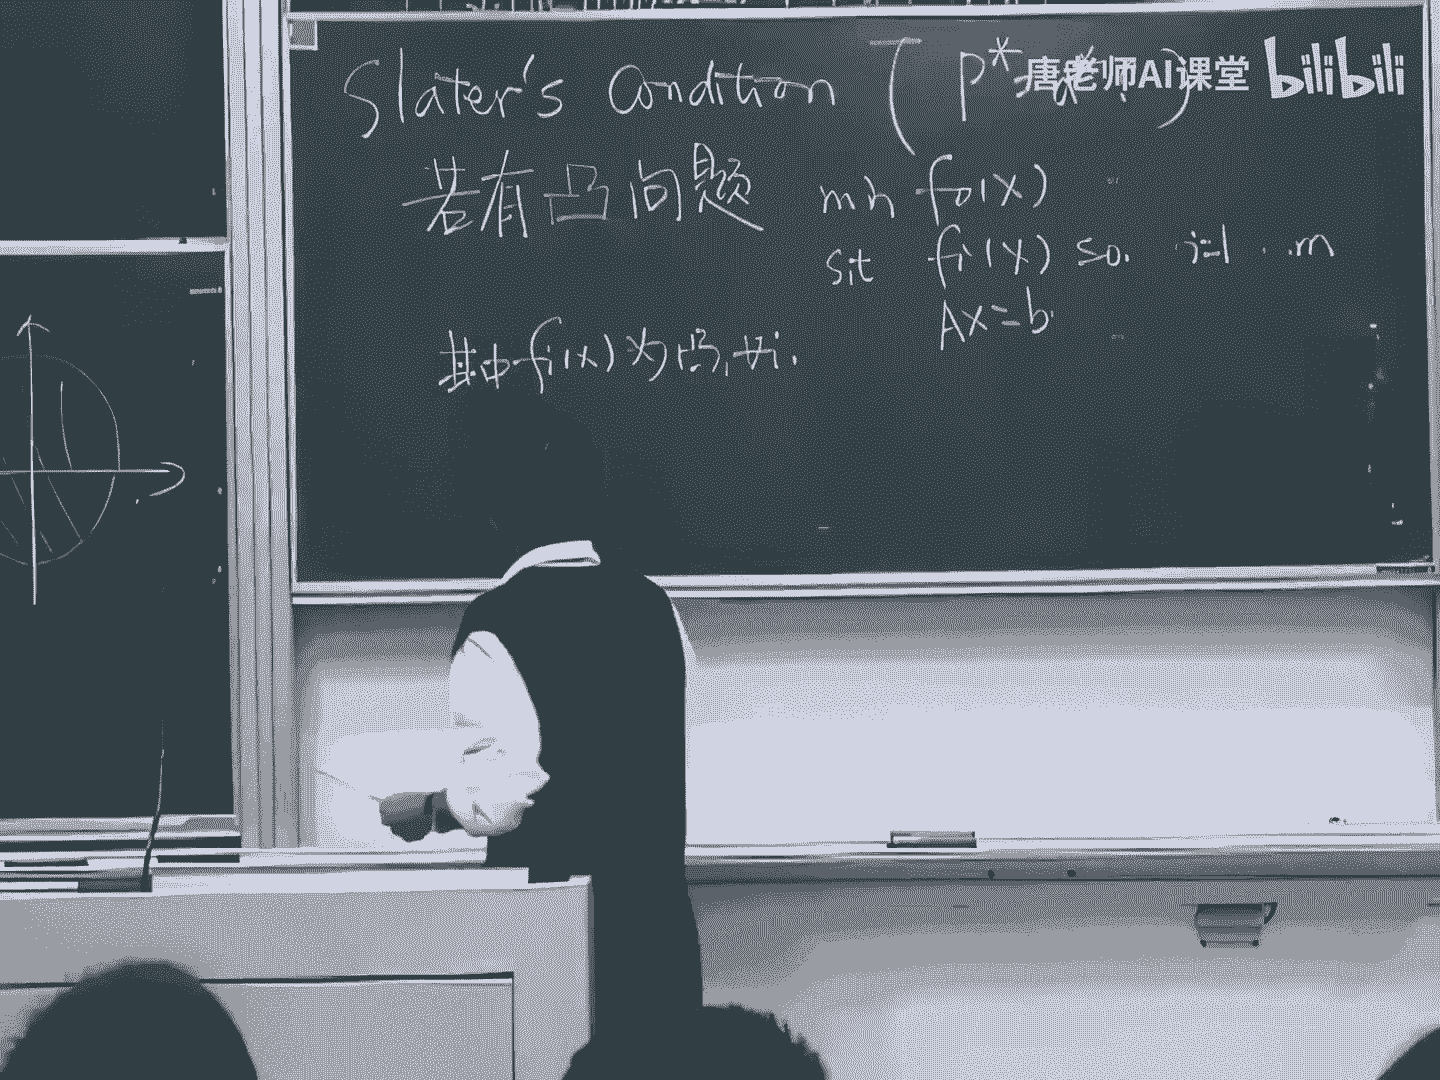 Slater's Condition (P*
唐老师AI课堂 bilibili
若有凸问题 min f₀(x)
s.t fi(x) ≤0. i=1 ... m
Ax=b
其中fi(x)为凸,∀i.